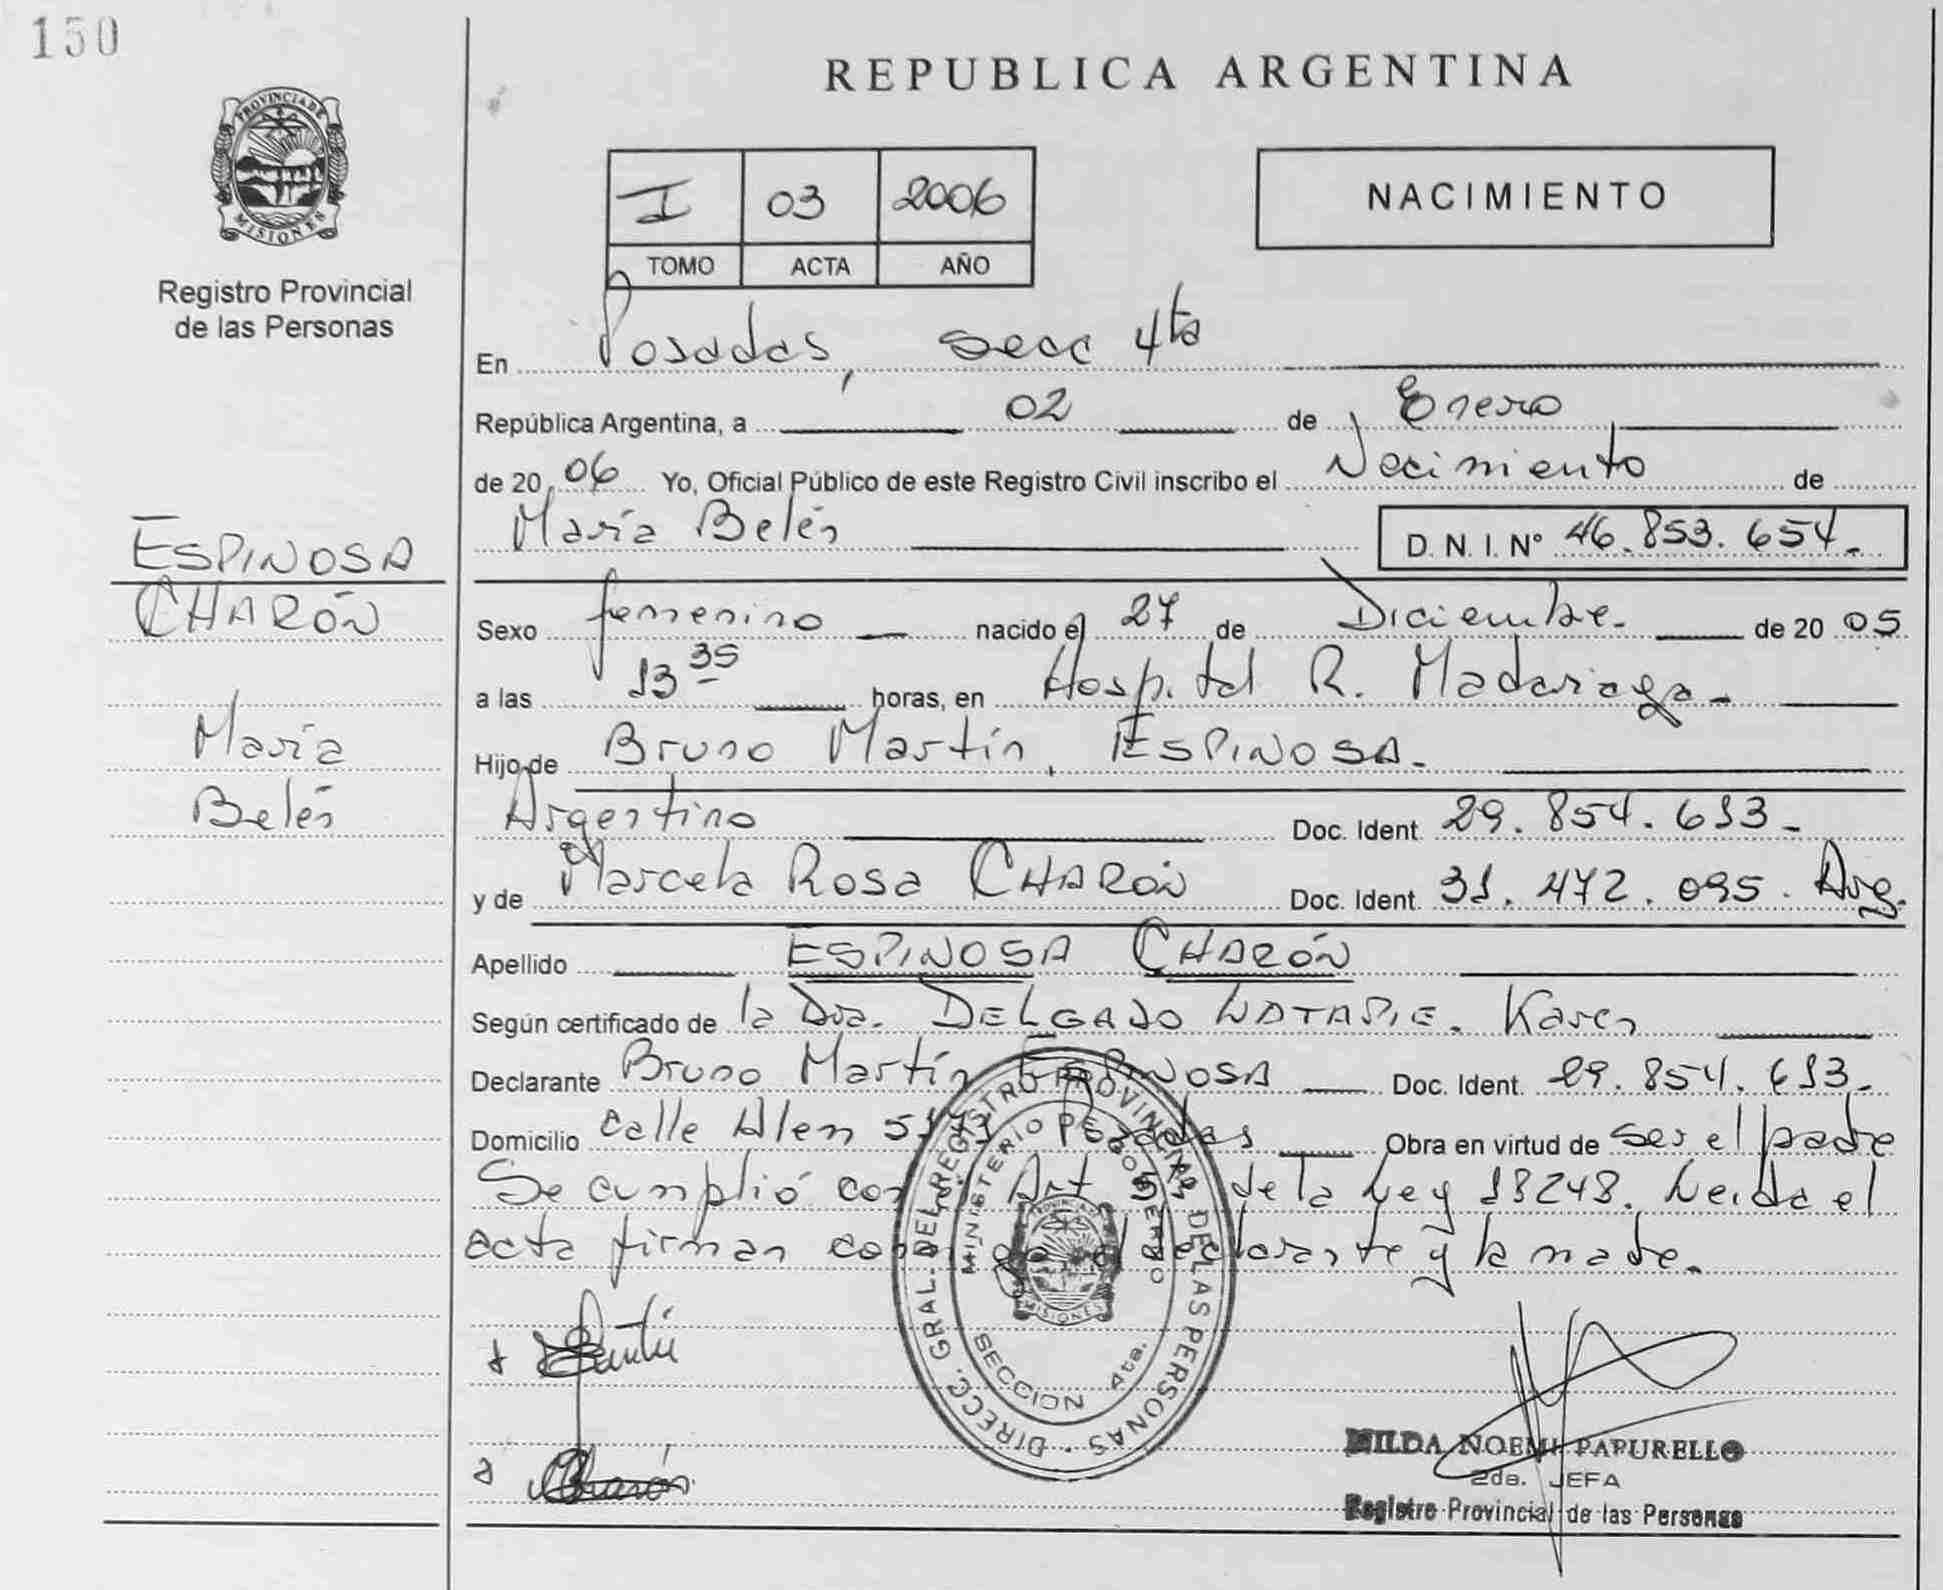 150
PROVINCIA DE
MISIONES
Registro Provincial
de las Personas
ESPINOSA
CHARÓN
María
Belén
REPUBLICA ARGENTINA
I 03 2006
TOMO ACTA AÑO
NACIMIENTO
En Posadas, secc 4ta
República Argentina, a 02 de Enero
de 20 06 Yo, Oficial Público de este Registro Civil inscribo el Nacimiento de
María Belén D. N. I. N° 46.853.654.
Sexo femenino nacido el 27 de Diciembre. de 20 05
a las 13 35 horas, en Hospital R. Madariaga
Hijo de Bruno Martín, ESPINOSA.
Argentino Doc. Ident. 29.854.613.
y de Marcela Rosa CHARÓN Doc. Ident. 31.472.095. Arg.
Apellido ESPINOSA CHARÓN
Según certificado de la Dra. DELGADO Karen
Declarante Bruno Martín ESPINOSA Doc. Ident. 29.854.613.
Domicilio Calle Alem Posadas Obra en virtud de ser el padre
Se cumplió con Art de la Ley 18248. Leida el
acta firman conmigo el declarante y la madre.
DIRECC. GRAL. DEL REGISTRO PROVINCIAL DE LAS PERSONAS
MINISTERIO DE GOBIERNO
MISIONES
SECCION 4ta.
HILDA NOEMI PAPURELLO
2da. JEFA
Registro Provincial de las Personas